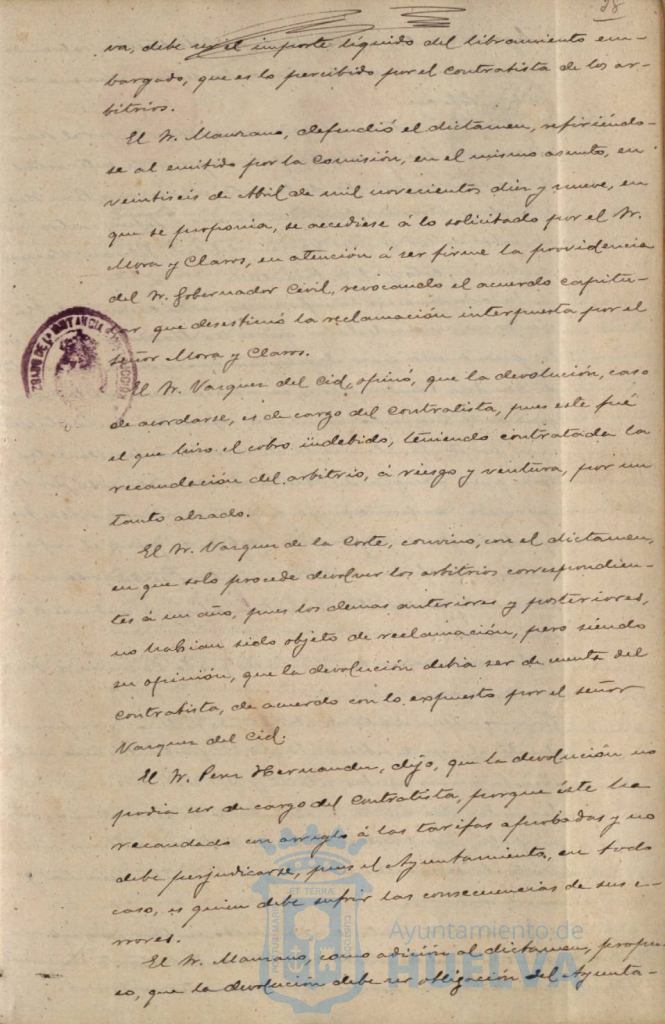 28
va, debe ser el importe líquido del libramiento em-
bargado, que es lo percibido por el contratista de los ar-
bitrios.
El Sr. Manzano, defendió el dictamen, refiriéndo-
se al emitido por la Comisión, en el mismo asunto, en
veintiseis de Abril de mil novecientos diez y nueve, en
que se proponia, se accediese á lo solicitado por el Sr.
Mora y Claros, en atención á ser firme la providencia
del Sr. Gobernador Civil, revocando el acuerdo capitu-
lar que desestimó la reclamación interpuesta por el
señor Mora y Claros.
El Sr. Vazquez del Cid, opinó, que la devolución, caso
de acordarse, es de cargo del Contratista, pues este fué
el que hizo el cobro indebido, teniendo contratada la
recaudación del arbitrio, á riesgo y ventura, por un
tanto alzado.
El Sr. Vazquez de la Corte, convino, con el dictamen,
en que solo procede devolver los arbitrios correspondien-
tes á un año, pues los demas anteriores y posteriores,
no habian sido objeto de reclamación, pero siendo
su opinión, que la devolución debia ser de cuenta del
Contratista, de acuerdo con lo expuesto por el señor
Vazquez del Cid.
El Sr. Perez Hernandez, dijo, que la devolución no
podia ser de cargo del Contratista, porque éste ha
recaudado con arreglo á las tarifas aprobadas y no
debe perjudicarse, pues el Ayuntamiento, en todo
caso, es quien debe sufrir las consecuencias de sus e-
rrores.
El Sr. Manzano, como adición al dictamen, propu-
so, que la devolución debe ser obligación del Ayunta-
Ayuntamiento de
HUELVA